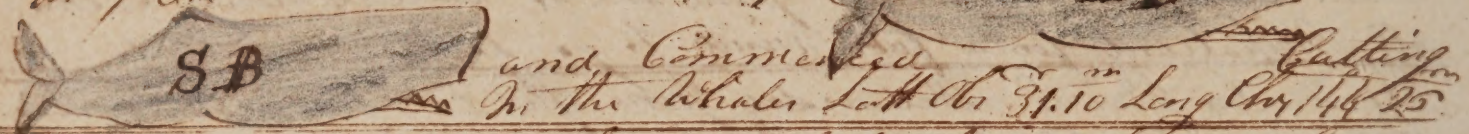 SB
and Commenced Cutting
In the Whales Latt Obs 31.10 Long Chr 144 25